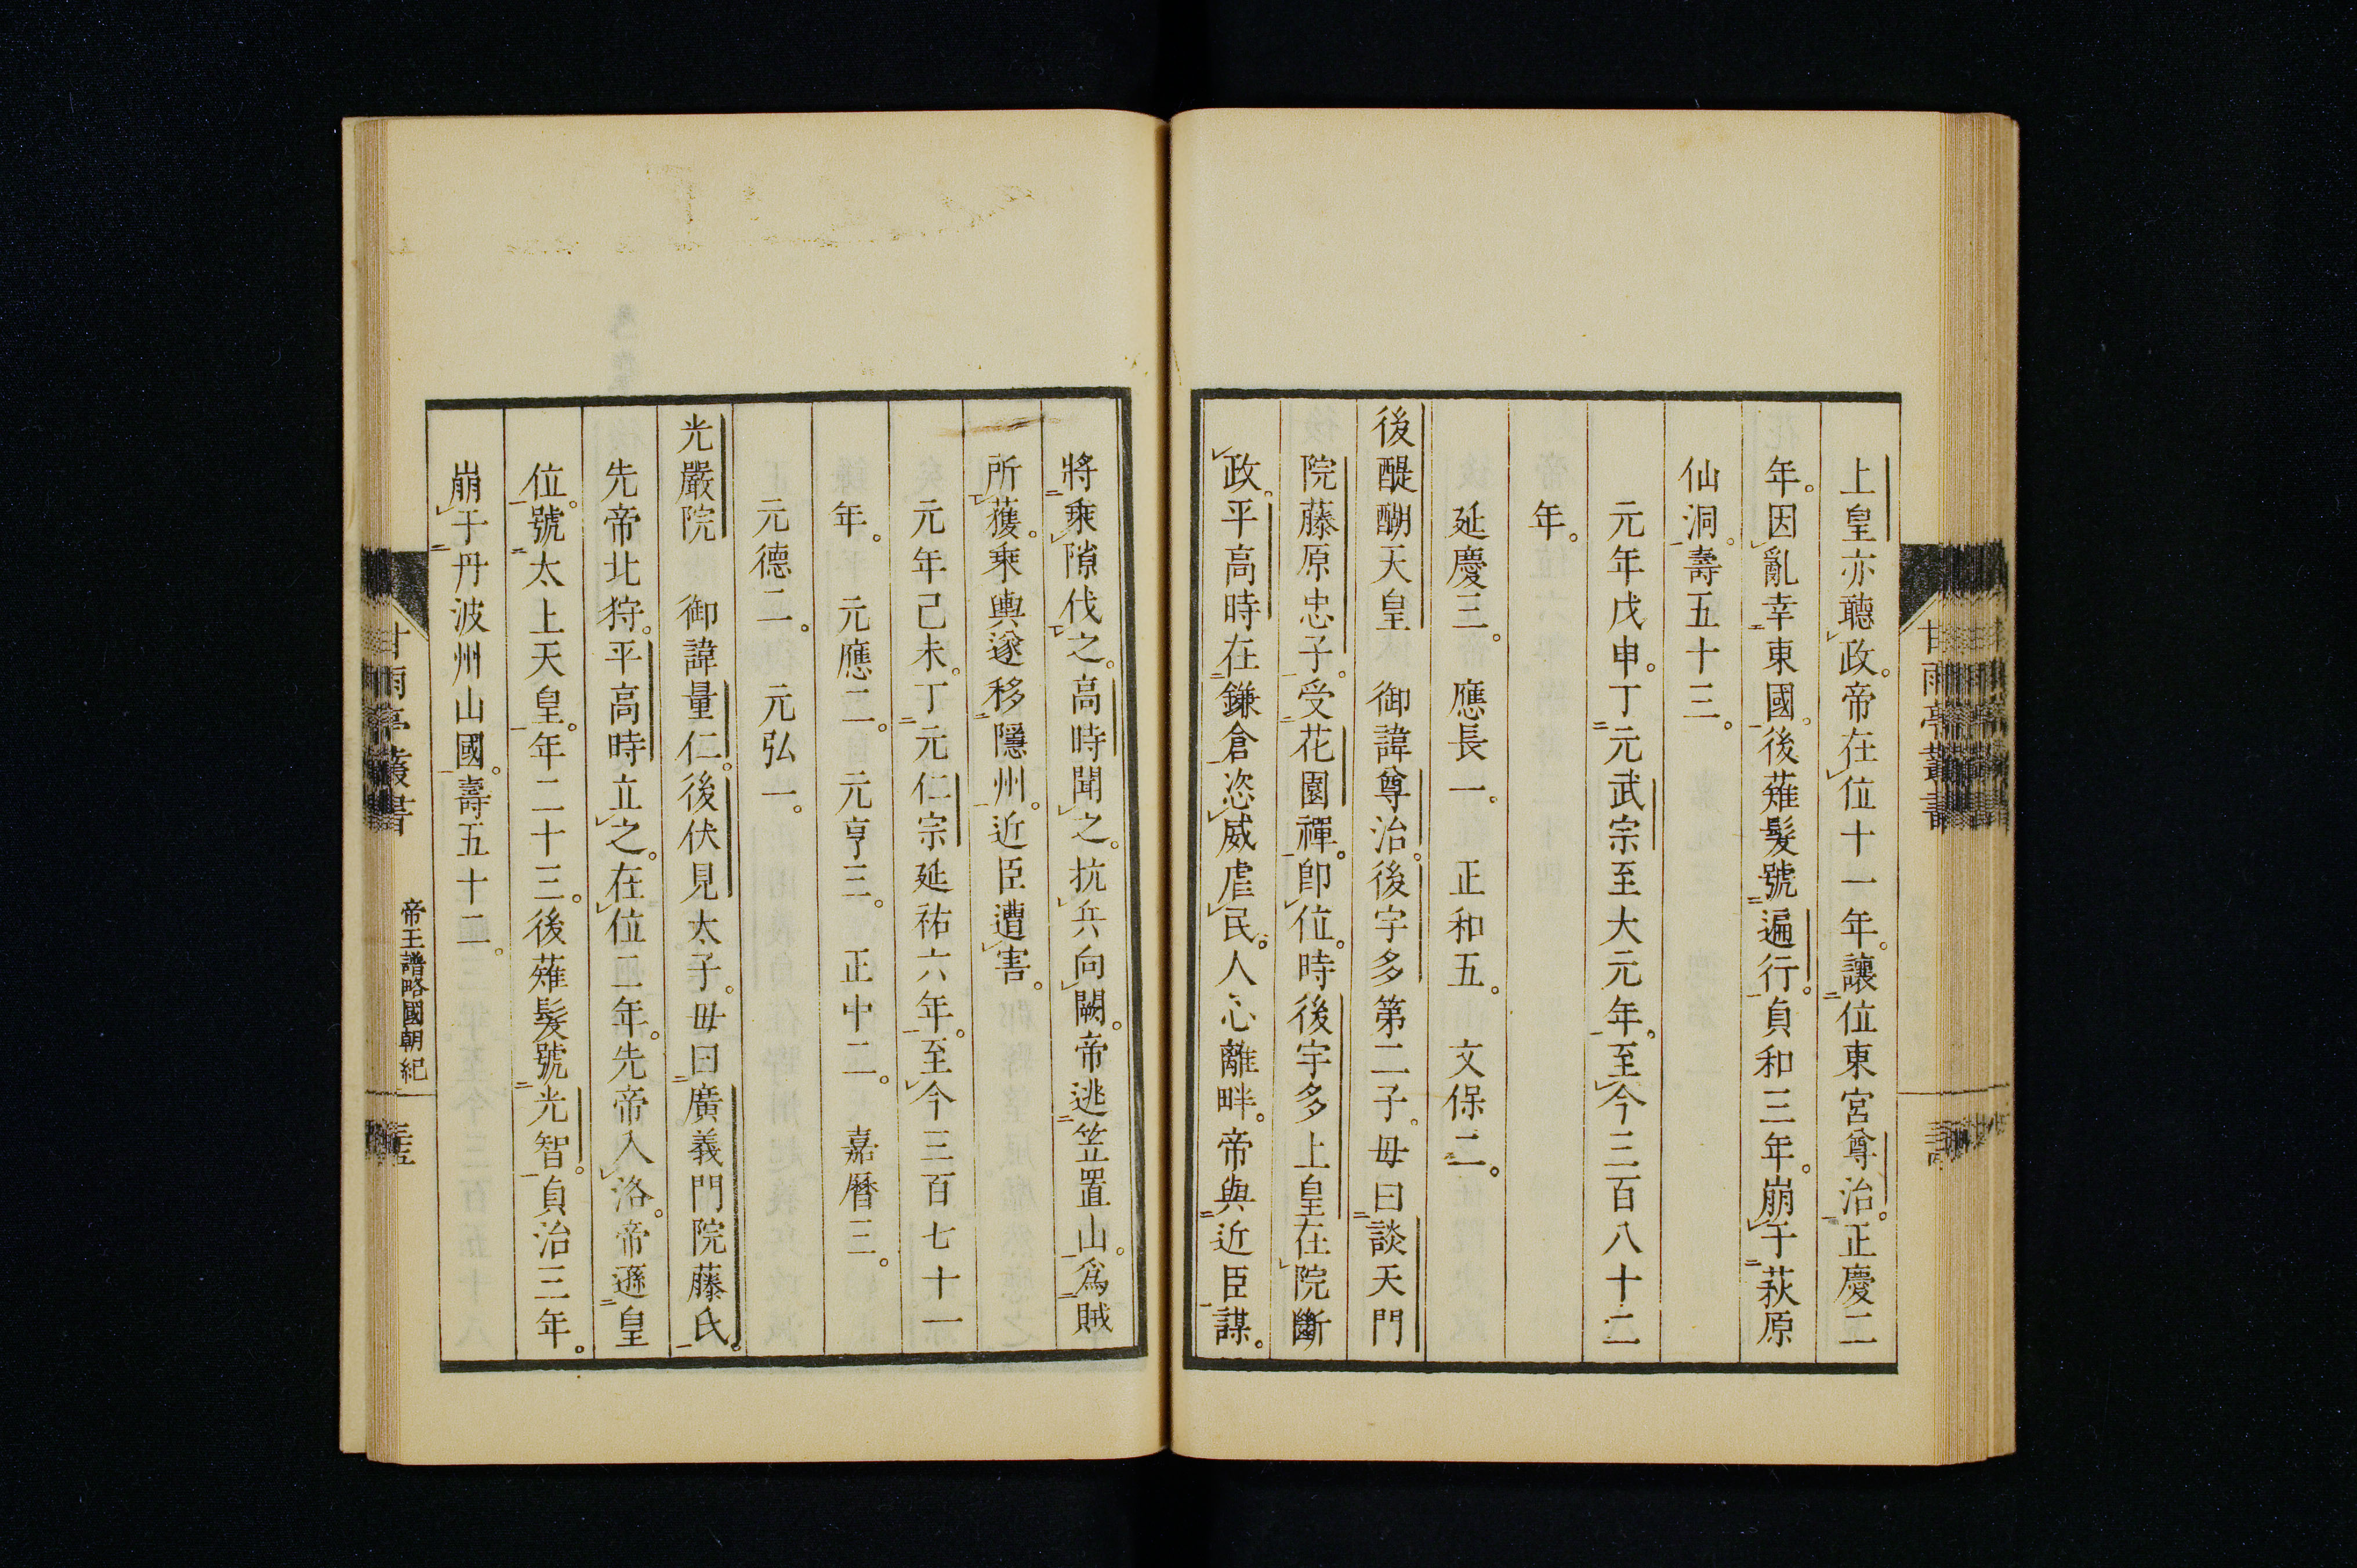 上皇亦聽政。帝在位十一年。讓位東宮尊治。正慶二
年。因亂幸東國。後薙髮號遍行。貞和三年。崩于萩原
仙洞。壽五十三。
元年戊申。丁元武宗至大元年。至今三百八十二
年。
延慶三。　應長一。　正和五。　文保二。
後醍醐天皇　御諱尊治。後宇多第二子。毋曰談天門
院藤原忠子。受花園禪。卽位。時後宇多上皇在院斷
政。平高時在鎌倉恣威虐民。人心離畔。帝與近臣謀。
將乘隙伐之。高時聞之。抗兵向闕。帝逃笠置山。爲賊
所獲。乘輿遂移隱州。近臣遭害。
元年己未。丁元仁宗延祐六年。至今三百七十一
年。　元應二。　元亨三。　正中二。　嘉曆三。
元德二。　元弘一。
光嚴院　御諱量仁。後伏見太子。毋曰廣義門院藤氏。
先帝北狩。平高時立之。在位二年。先帝入洛。帝遜皇
位。號太上天皇。年二十三。後薙髮號光智。貞治三年。
崩于丹波州山國。壽五十二。
甘雨亭叢書
帝王譜略國朝紀